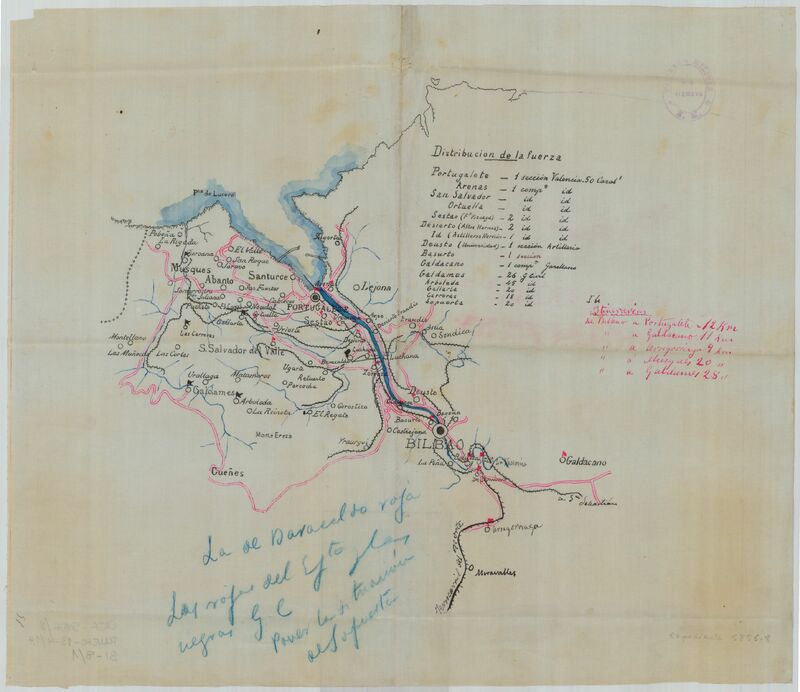 Distribucion de la fuerza
Portugalete — 1 sección Valencia. 50 Cazas
Arenas — 1 comp.ª id
San Salvador — id id
Ortuella — id id
Sestao — 2 id
Desierto (Altos Hornos) — 2 id
Id — 1 id
Deusto (Universidad) — 1 sección Artilleria
Basurto — 1 seccion
Galdacano — 1 comp.ª Garellano
Galdames — 26 G. Civil
Arboleda — 45 id
Gallarta — 20 id
Carreras — 18 id
Sopuerta — 20 id
Itinerarios
de Bilbao a Portugalete = 12 Km
" a Galdacano 11 Km
" a Arrigorriaga 7 Km
" a Musques 20 "
" a Galdames 28 "
Pta de Lucero
Pobeña
La Rigada
Musques
El Valle
San Roque
Abanto
Santurce
Algorta
Lejona
PORTUGALETE
Sestao
Las Carreras
Gallarta
Urioste
Montellano
Las Muñecas
Las Cortes
S. Salvador del Valle
Erandio
Asua
Sondica
Luchana
Baracaldo
Ugarte
Retuerto
Uraltaga
Matamoros
Galdames
Arboleda
La Reineta
El Regato
Gorostiza
Monte Ereza
Yraurgui
Güeñes
Deusto
Basurto
Castrejana
Begoña
BILBAO
La Peña
Galdacano
a Sn Sebastian
Arrigorriaga
Miravalles
Ferrocarril del Norte
La de Baracaldo roja
Las rojas del Ejto y las
negras G. C
Poner la situación
de Sopuerta
Expediente 5855-8